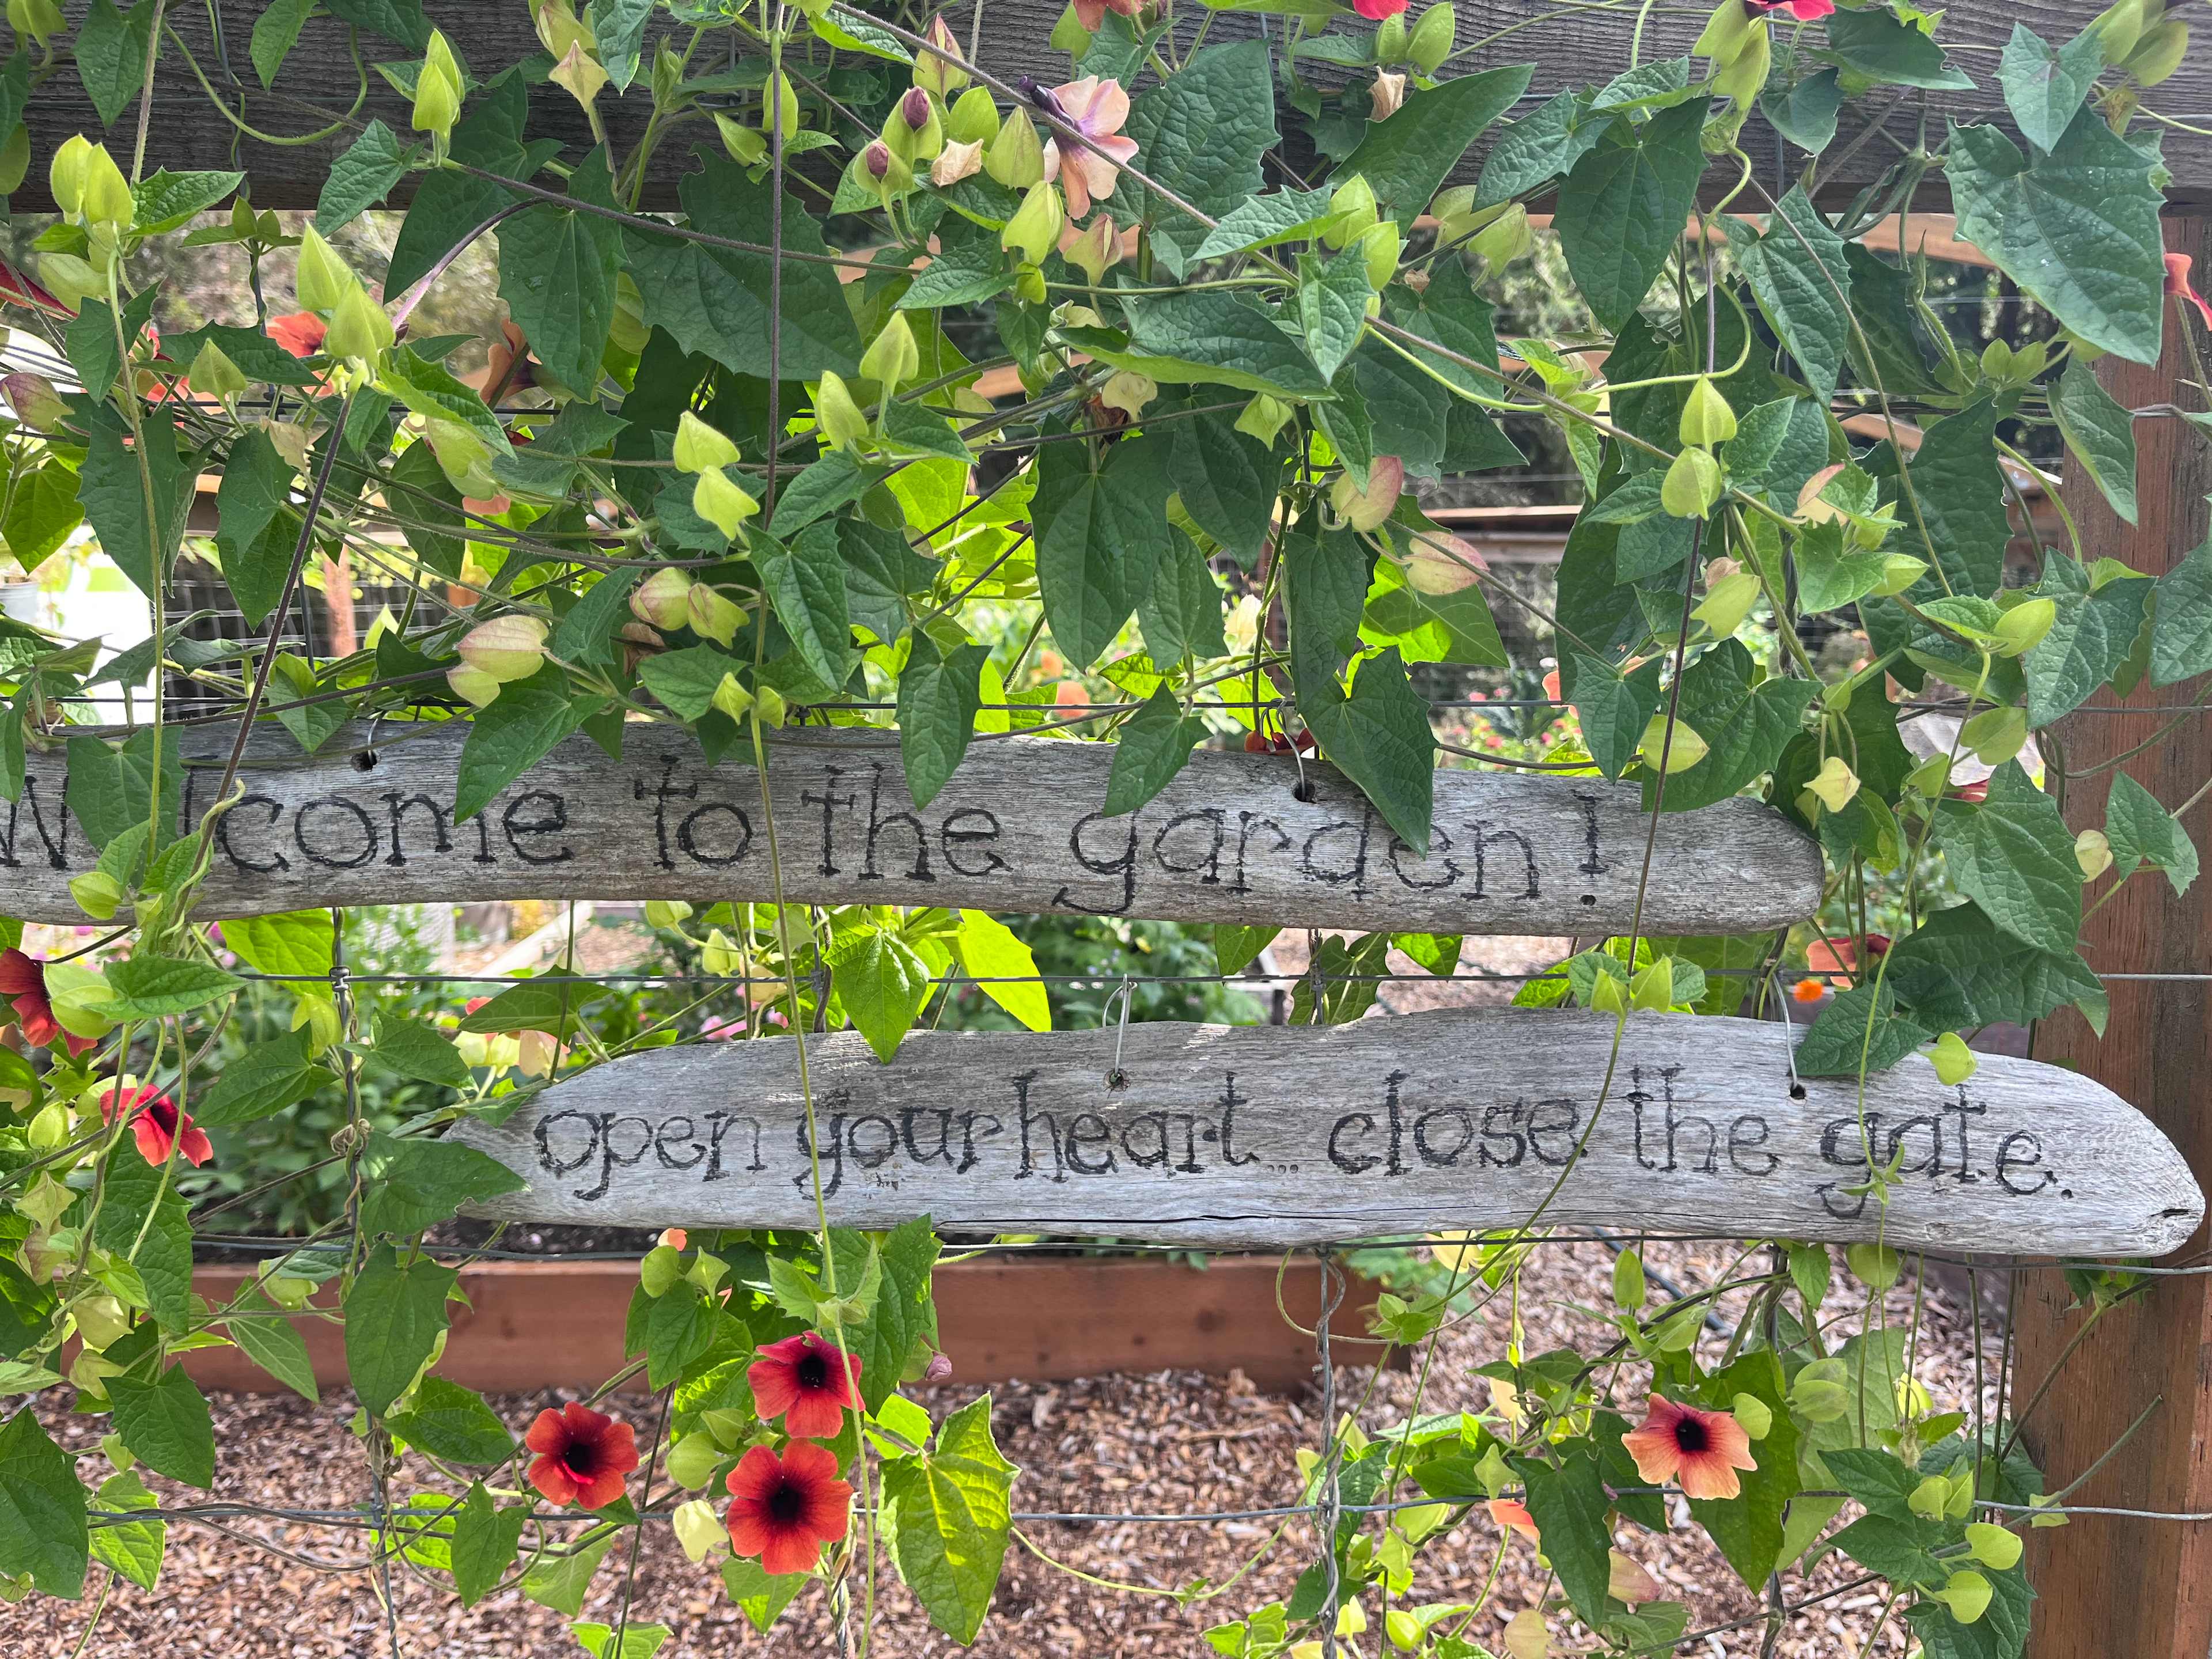 Welcome to the garden!
open your heart... close the gate.